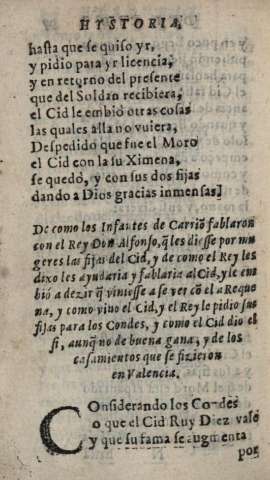 HYSTORIA,
hasta que se quiso yr,
y pidio para yr licencia,
y en retorno del presente
que del Soldan recibiera,
el Cid le embiò otras cosas
las quales alla no vuiera,
Despedido que fue el Moro
el Cid con la su Ximena,
se quedó, y con sus dos fijas
dando a Dios gracias inmensas]
De como los Infantes de Carriõ fablaron
con el Rey Don Alfonso, q̃ les diesse por mu
geres las fijas del Cid, y de como el Rey les
dixo les ayudaria y fablaria al Cid, y le em
biò a dezir q̃ viniesse a se ver cõ el a Reque
na, y como vino el Cid, y el Rey le pidio sus
fijas para los Condes, y como el Cid dio el
si, aunq̃ no de buena gana, y de los
casamientos que se fizieron
en Valencia.
Considerando los Condes
o que el Cid Ruy Diez vale
y que su fama se augmenta
por